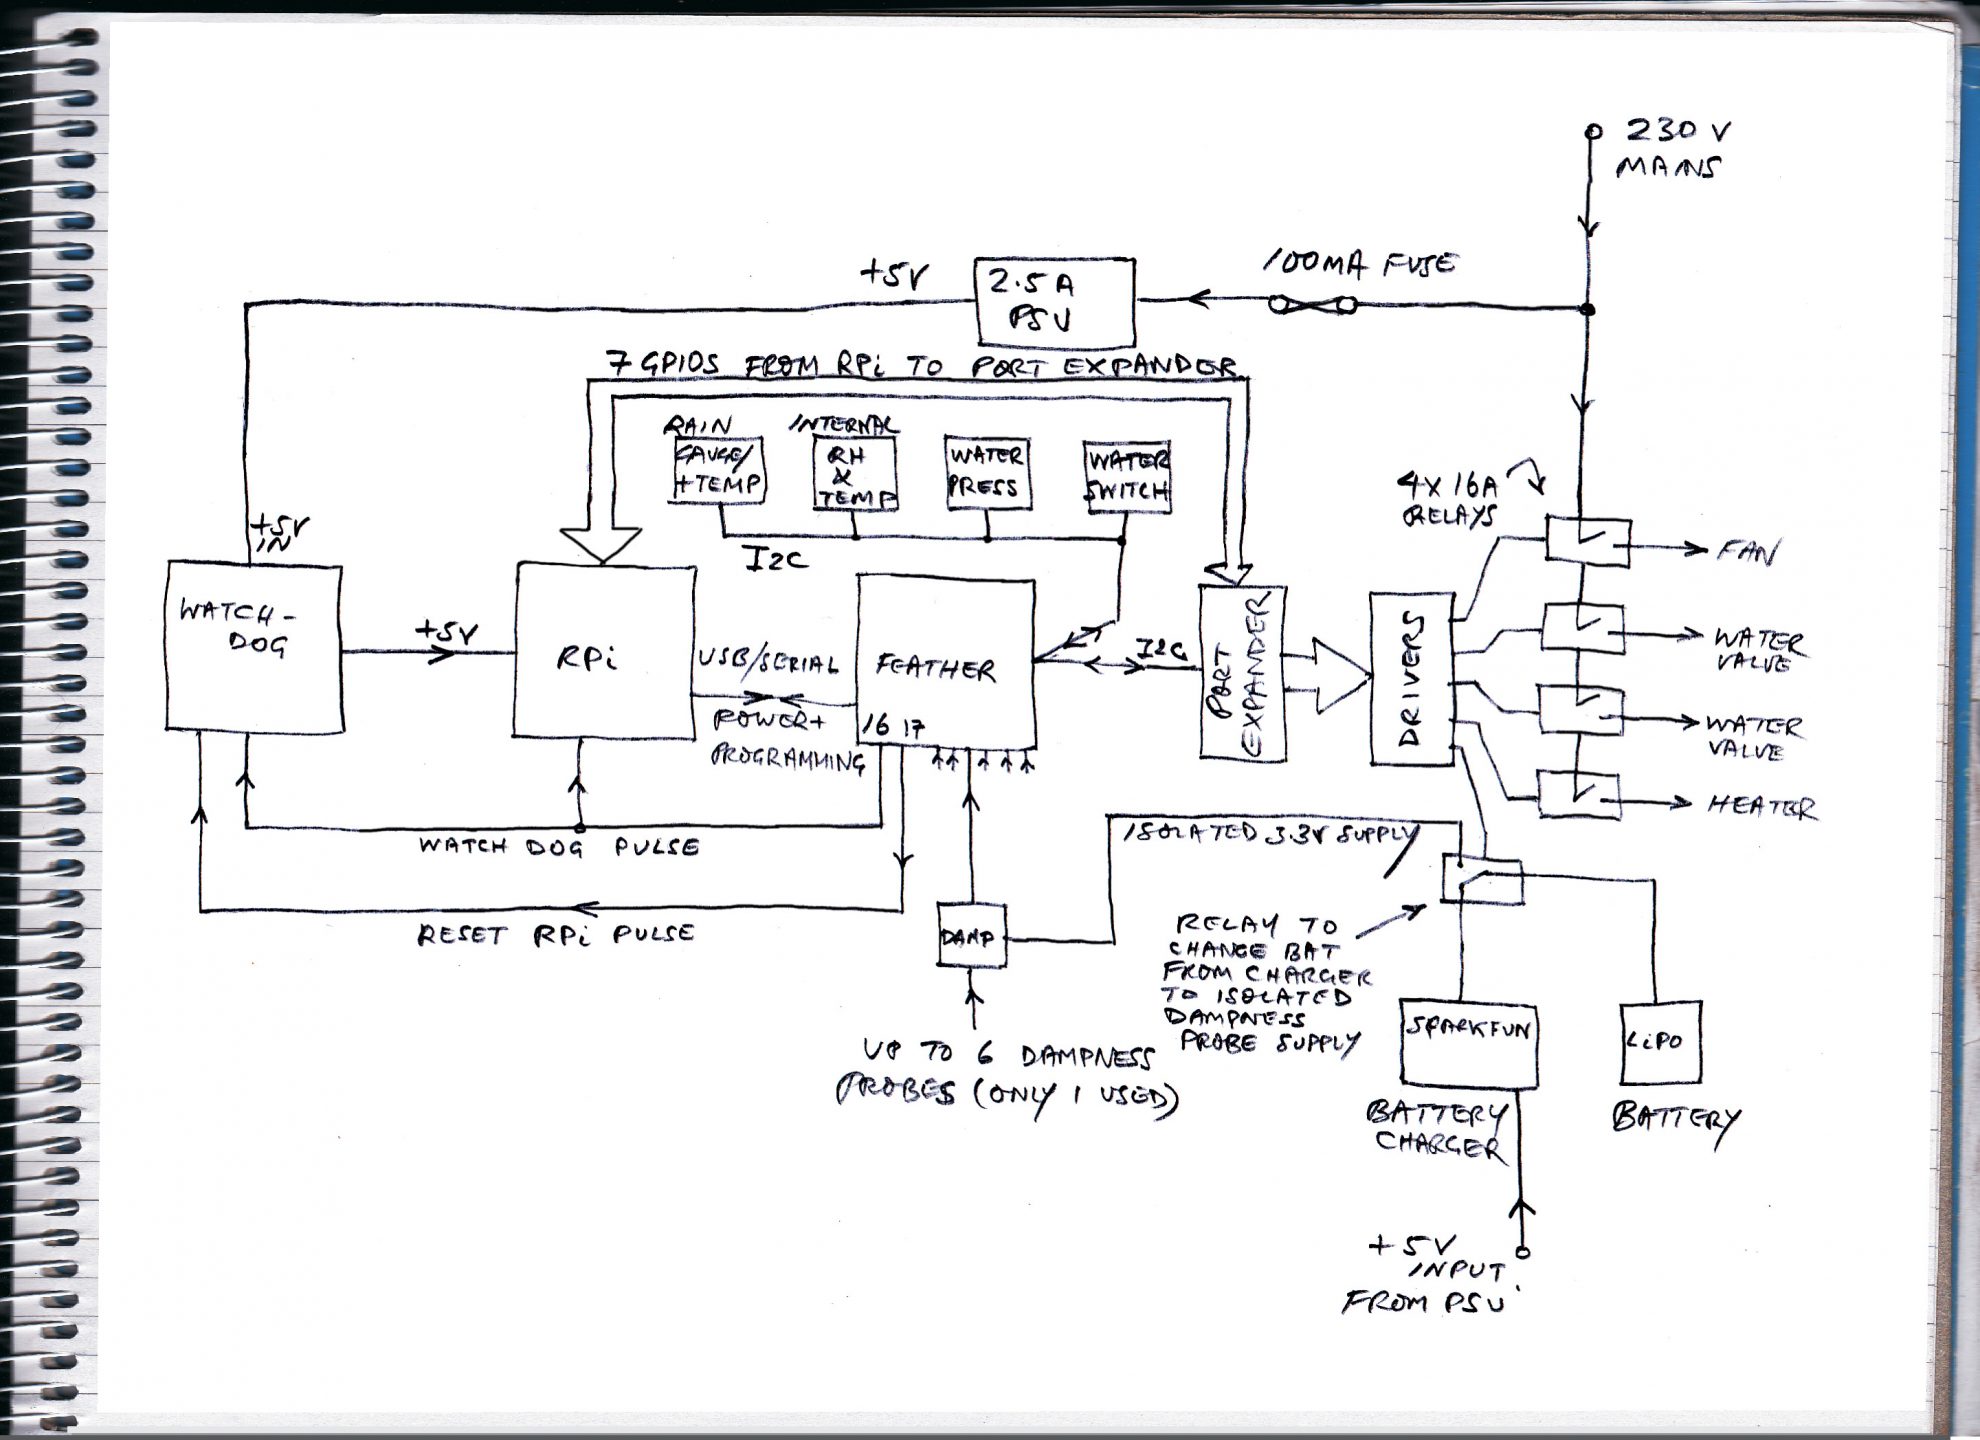 230 V
MAINS
100MA FUSE
+5V
2.5A
PSU
7 GPIOS FROM RPi TO PORT EXPANDER
RAIN
GAUGE/
+TEMP
INTERNAL
RH
&
TEMP
WATER
PRESS
WATER
SWITCH
I2C
4X 16A
RELAYS
FAN
WATER
VALVE
WATER
VALVE
HEATER
+5V
IN
WATCH-
DOG
+5V
RPi
USB/SERIAL
POWER+
PROGRAMMING
FEATHER
16 17
I2C
PORT
EXPANDER
DRIVERS
WATCH DOG PULSE
RESET RPi PULSE
ISOLATED 3.3V SUPPLY
DAMP
UP TO 6 DAMPNESS
PROBES (ONLY 1 USED)
RELAY TO
CHANGE BAT
FROM CHARGER
TO ISOLATED
DAMPNESS
PROBE SUPPLY
SPARKFUN
BATTERY
CHARGER
LiPO
BATTERY
+5V
INPUT
FROM PSU